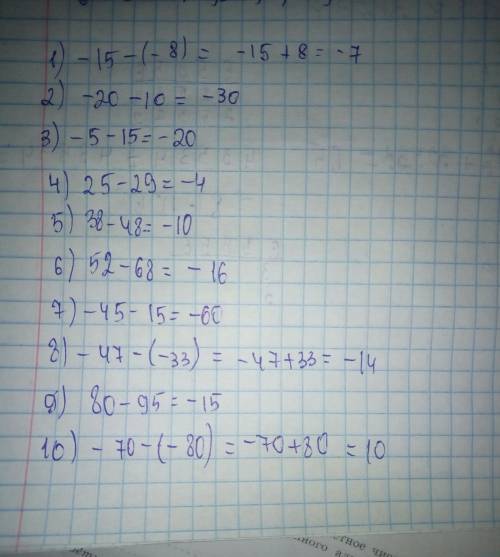 1) -15 - (-8) = -15 + 8 = -7
2) -20 - 10 = -30
3) -5 - 15 = -20
4) 25 - 29 = -4
5) 38 - 48 = -10
6) 52 - 68 = -16
7) -45 - 15 = -60
8) -47 - (-33) = -47 + 33 = -14
9) 80 - 95 = -15
10) -70 - (-80) = -70 + 80 = 10